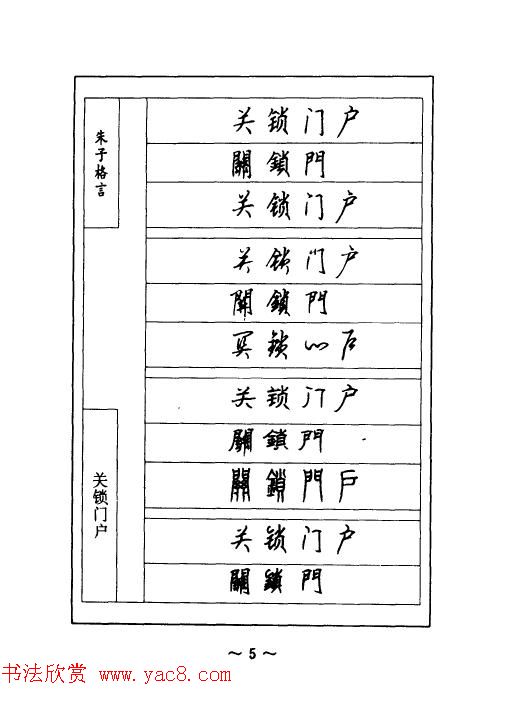 朱子格言
关锁门户
關鎖門
关锁门户
关锁门户
關鎖門
关锁门户
关锁门户
關鎖門
關鎖門戶
关锁门户
關鎖門
关锁门户
~ 5 ~
书法欣赏 www.yac8.com